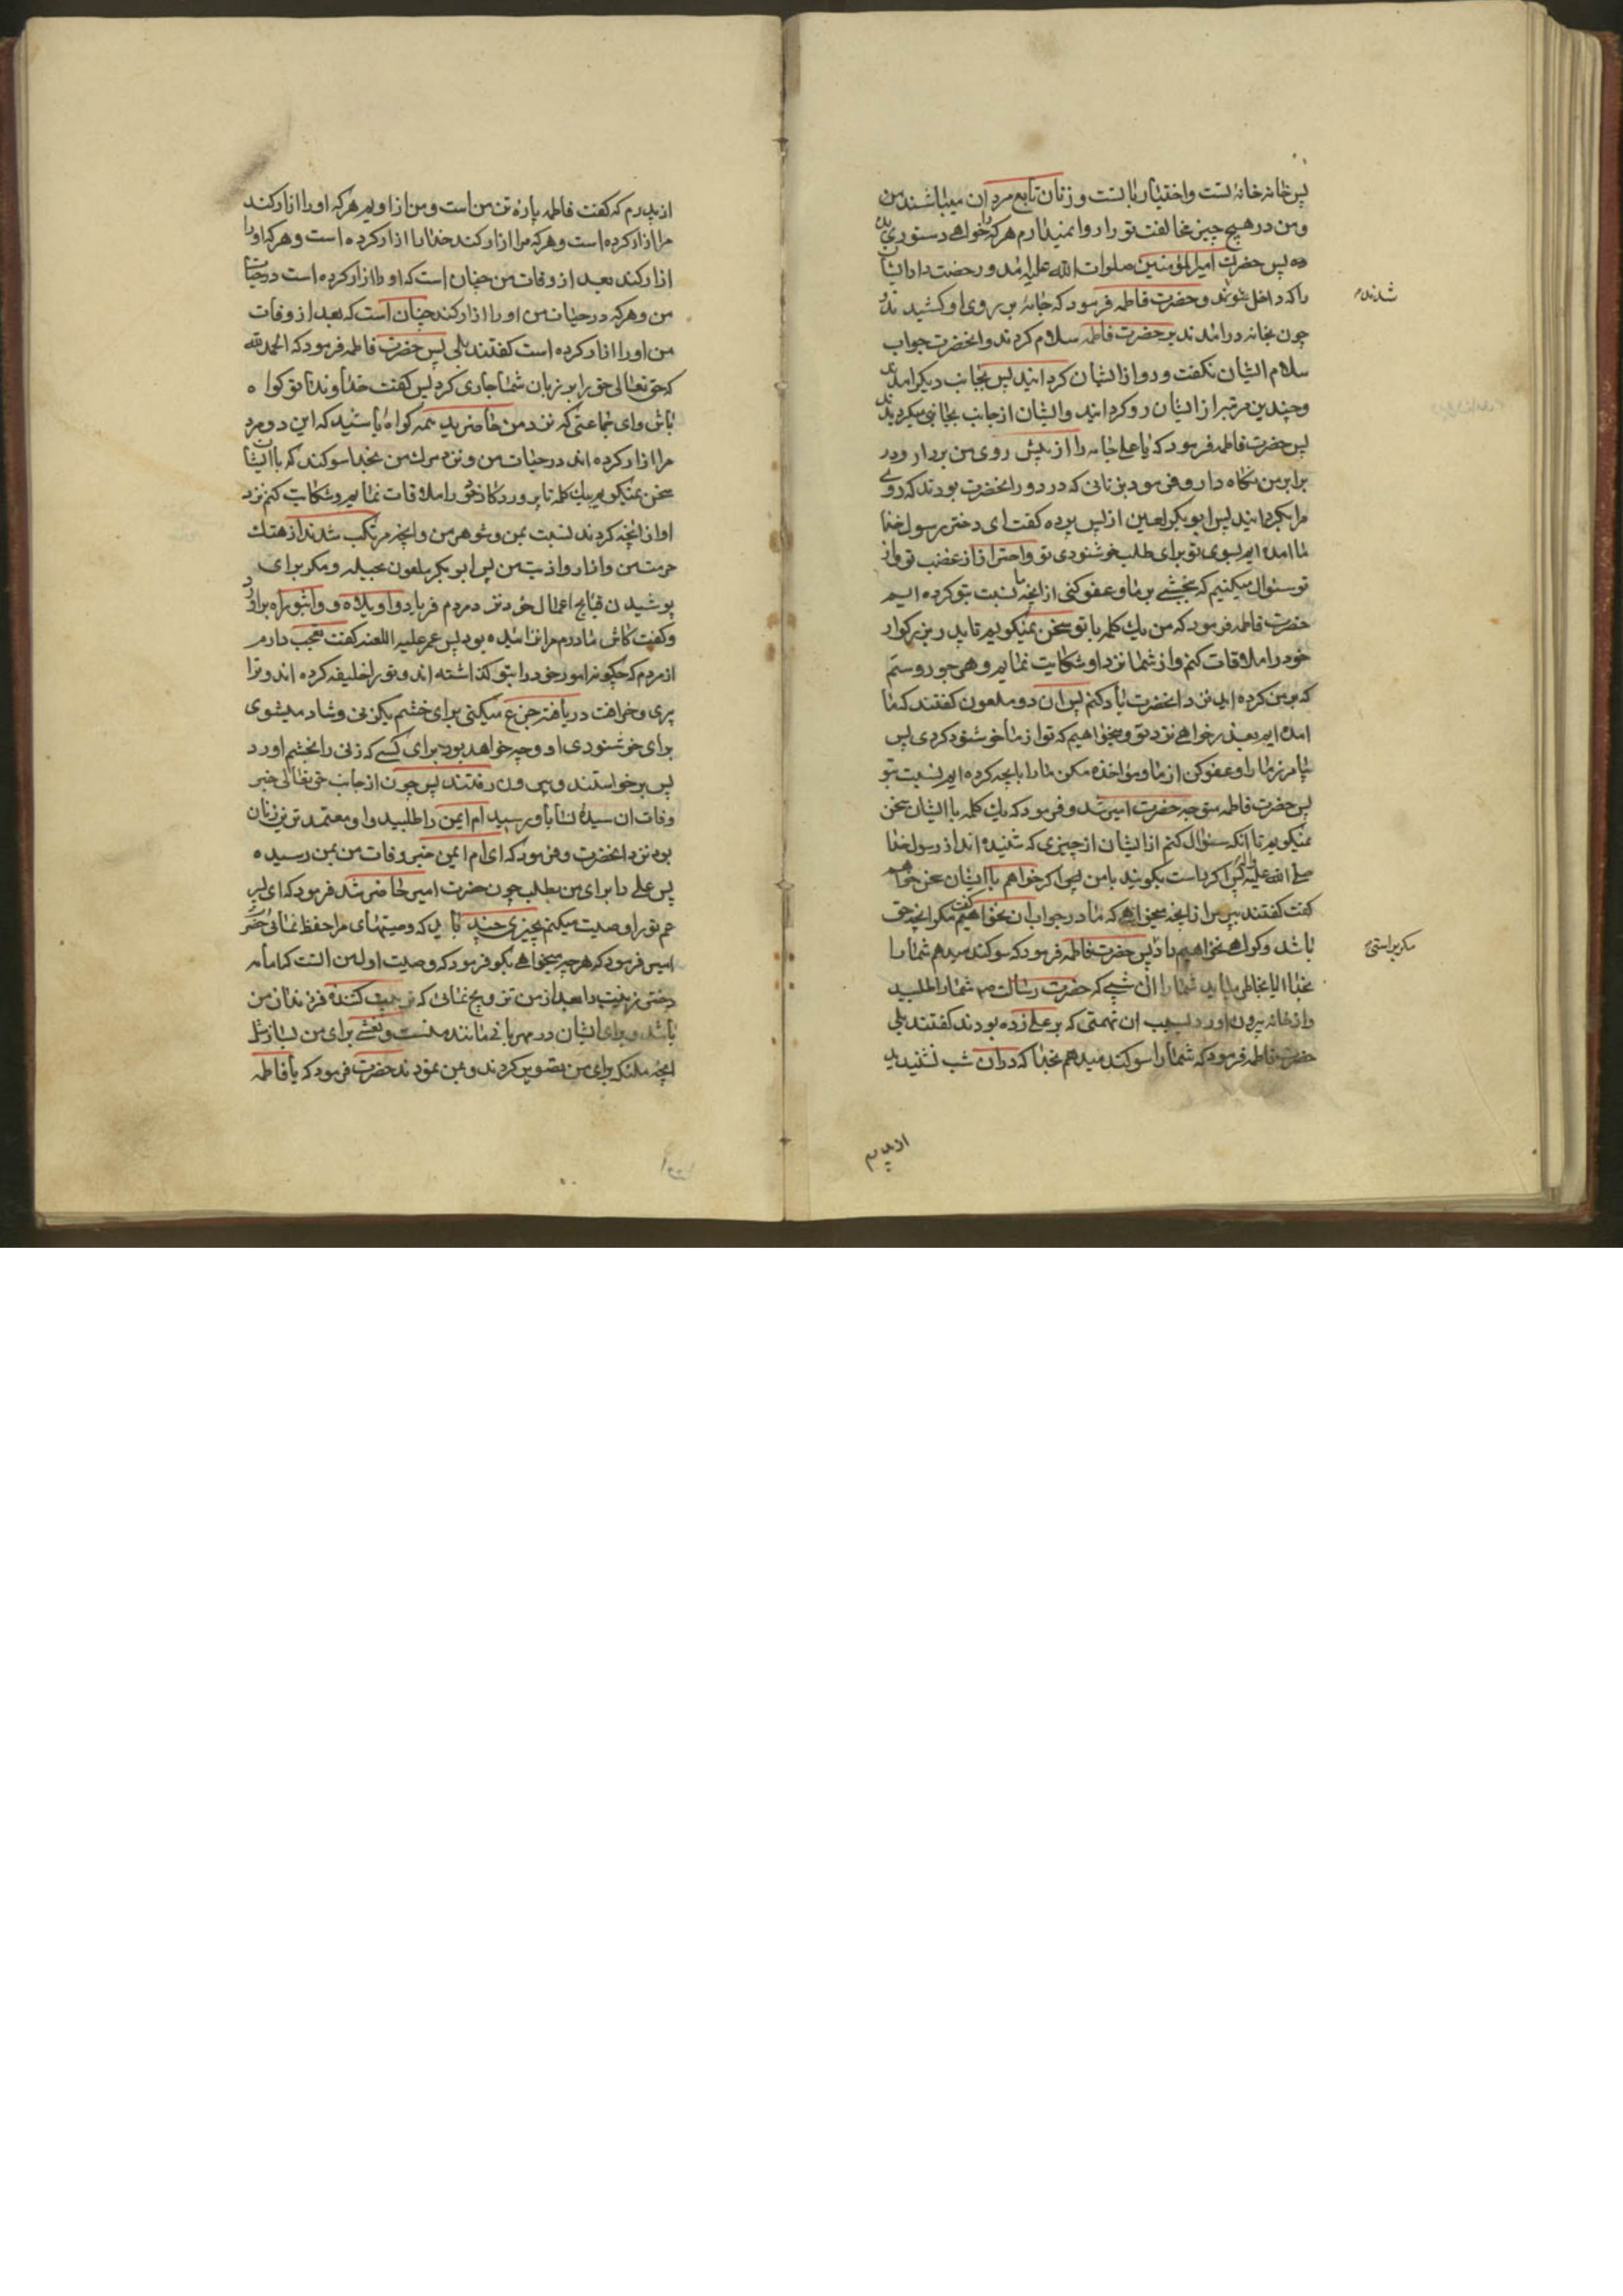 پس خانه خانهٔ تست و اختیار با تست و زنان تابع مردان میباشند من
ومن در هیچ چیز مخالفت تو را روا نمیدارم هر که را خواهی دستوری بده
ده پس حضرت امیرالمؤمنین صلوات الله علیه امد و رخصت داد ایشان
را که داخل شوند و حضرت فاطمه فرمود که جامه بر روی او کشیدند
شدند
چون بخانه درامدند بر حضرت فاطمه سلام کردند و انحضرت جواب
سلام ایشان نکفت و رو از ایشان کردانید پس بجانب دیکر امدند
و چندین مرتبه از ایشان رو کردانید و ایشان از جانب بجانبی میکردیدند
پس حضرت فاطمه فرمود که یا علی جامه را از پیش روی من بردار و در
برابر من نکاه دار و فرمود بزنانی که در دور انحضرت بودند که روی
مرا بکردانید پس ابو بکر لعین از پس پرده کفت ای دختر رسول خدا
ما امده ایم بسوی تو برای طلب خوشنودی تو و احتراز از غضب تو و از
تو سئوال میکنیم که ببخشی بر ما و عفو کنی از انچه ما نسبت بتو کرده ایم
حضرت فاطمه فرمود که من یک کلمه با تو سخن نمیکویم تا پدر بزرکوار
خود را ملاقات کنم و از شما نزد او شکایت نمایم و هر جور و ستم
که بر من کرده اید نزد انحضرت یاد کنم پس ان دو ملعون کفتند که ما
امده ایم بعذر خواهی نزد تو و میخواهیم که تو از ما خوشنود کردی پس
بیامرز ما را و عفو کن از ما و مؤاخذه مکن ما را بانچه کرده ایم نسبت بتو
پس حضرت فاطمه متوجه حضرت امیر شد و فرمود که یک کلمه با ایشان سخن
نمیکویم تا انکه سئوال کنم از ایشان از چیزی که شنیده اند از رسول خدا
صلی الله علیه واله پس اکر راست بکویند با من پس اکر خواهم با ایشان سخن خواهم
کفت کفتند بپرس از انچه میخواهی که ما در جواب ان نخواهیم کفت مکر انچه حق
مکر براستی
باشد و کواهی نخواهیم داد پس حضرت فاطمه فرمود که سوکند میدهم شما را
بخدا ایا بخاطر میاید شما را ان شبی که حضرت رسالت ص شما را طلبید
و از خانه بیرون اورد بسبب ان تهمتی که بر علی زده بودند کفتند بلی
حضرت فاطمه فرمود که شما را سوکند میدهم بخدا که در ان شب نشنیدید
از پدرم
از پدرم که کفت فاطمه پاره تن من است و من از اویم هر که او را ازار کند
مرا ازار کرده است و هر که مرا ازار کند خدا را ازار کرده است و هر که او را
ازار کند بعد از وفات من چنان است که او را ازار کرده است در حیات
من و هر که در حیات من او را ازار کند چنان است که بعد از وفات
من او را ازار کرده است کفتند بلی پس حضرت فاطمه فرمود که الحمد لله
که حق تعالی حق را بر زبان شما جاری کرد پس کفت خداوندا تو کواه
باش و ای جماعتی که نزد من حاضرید همه کواه باشید که این دو مرد
مرا ازار کرده اند در حیات من و نزد مرک من بخدا سوکند که با ایشان
سخن نمیکویم یک کلمه تا پروردکار خود را ملاقات نمایم و شکایت کنم نزد
او از انچه کردند نسبت بمن و شوهر من و انچه مرتکب شدند از هتک
حرمت من و ازار و اذیت من پس ابو بکر ملعون بحیله و مکر برای
پوشیدن قبایح اعمال خود نزد مردم فریاد واویلاه و واثبوراه براورد
و کفت کاش مادرم مرا نزائیده بود پس عمر علیه اللعنه کفت تعجب دارم
از مردم که چکونه امور خود را بتو کذاشته اند و تو را خلیفه کرده اند و ترا
پیری و خرافت دریافته جزع میکنی برای خشم یک زنی و شاد میشوی
برای خوشنودی او و چه خواهد بود برای کسی که زنی را بخشم اورد
پس برخواستند و بیرون رفتند پس چون از جانب حق تعالی خبر
وفات ان سیدهٔ نسا باو رسید ام ایمن را طلبید و او معتمد ترین زنان
بود نزد انحضرت و فرمود که ای ام ایمن خبر وفات من بمن رسیده
پس علی را برای من بطلب چون حضرت امیر حاضر شد فرمود که ای پسر
عم تو را وصیت میکنم بچیزی چند باید که وصیتهای مرا حفظ نمائی حضرت
امیر فرمود که هر چه میخواهی بکو فرمود که وصیت اول من انست که امامه
دختر زینب را بعد از من تزویج نمائی که تربیت کنندهٔ فرزندان من
باشد و برای ایشان در مهربانی مانند منست و نعشی برای من بساز مثل
انچه ملئکه برای من تصویر کردند و بمن نمودند حضرت فرمود که یا فاطمه